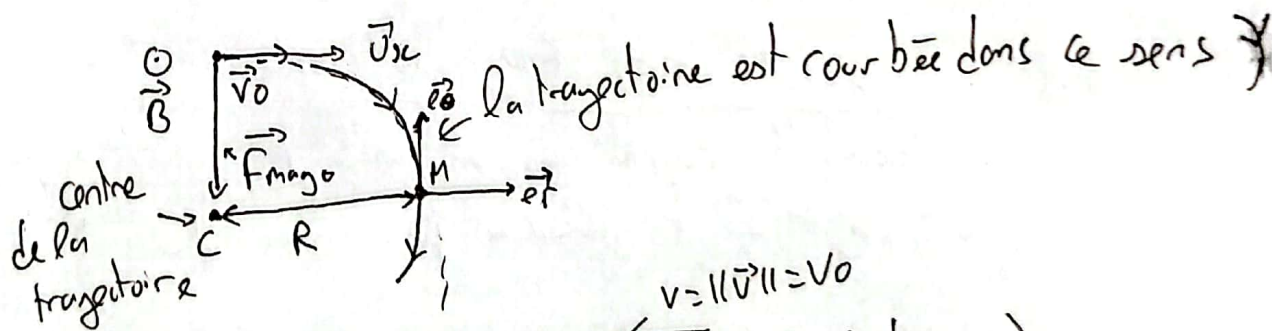 B⃗
v⃗0
u⃗x
e⃗θ
la trayectoire est courbée dans ce sens
F⃗mago
M
e⃗r
centre
de la
trayectoire
C
R
v=||v⃗||=V0